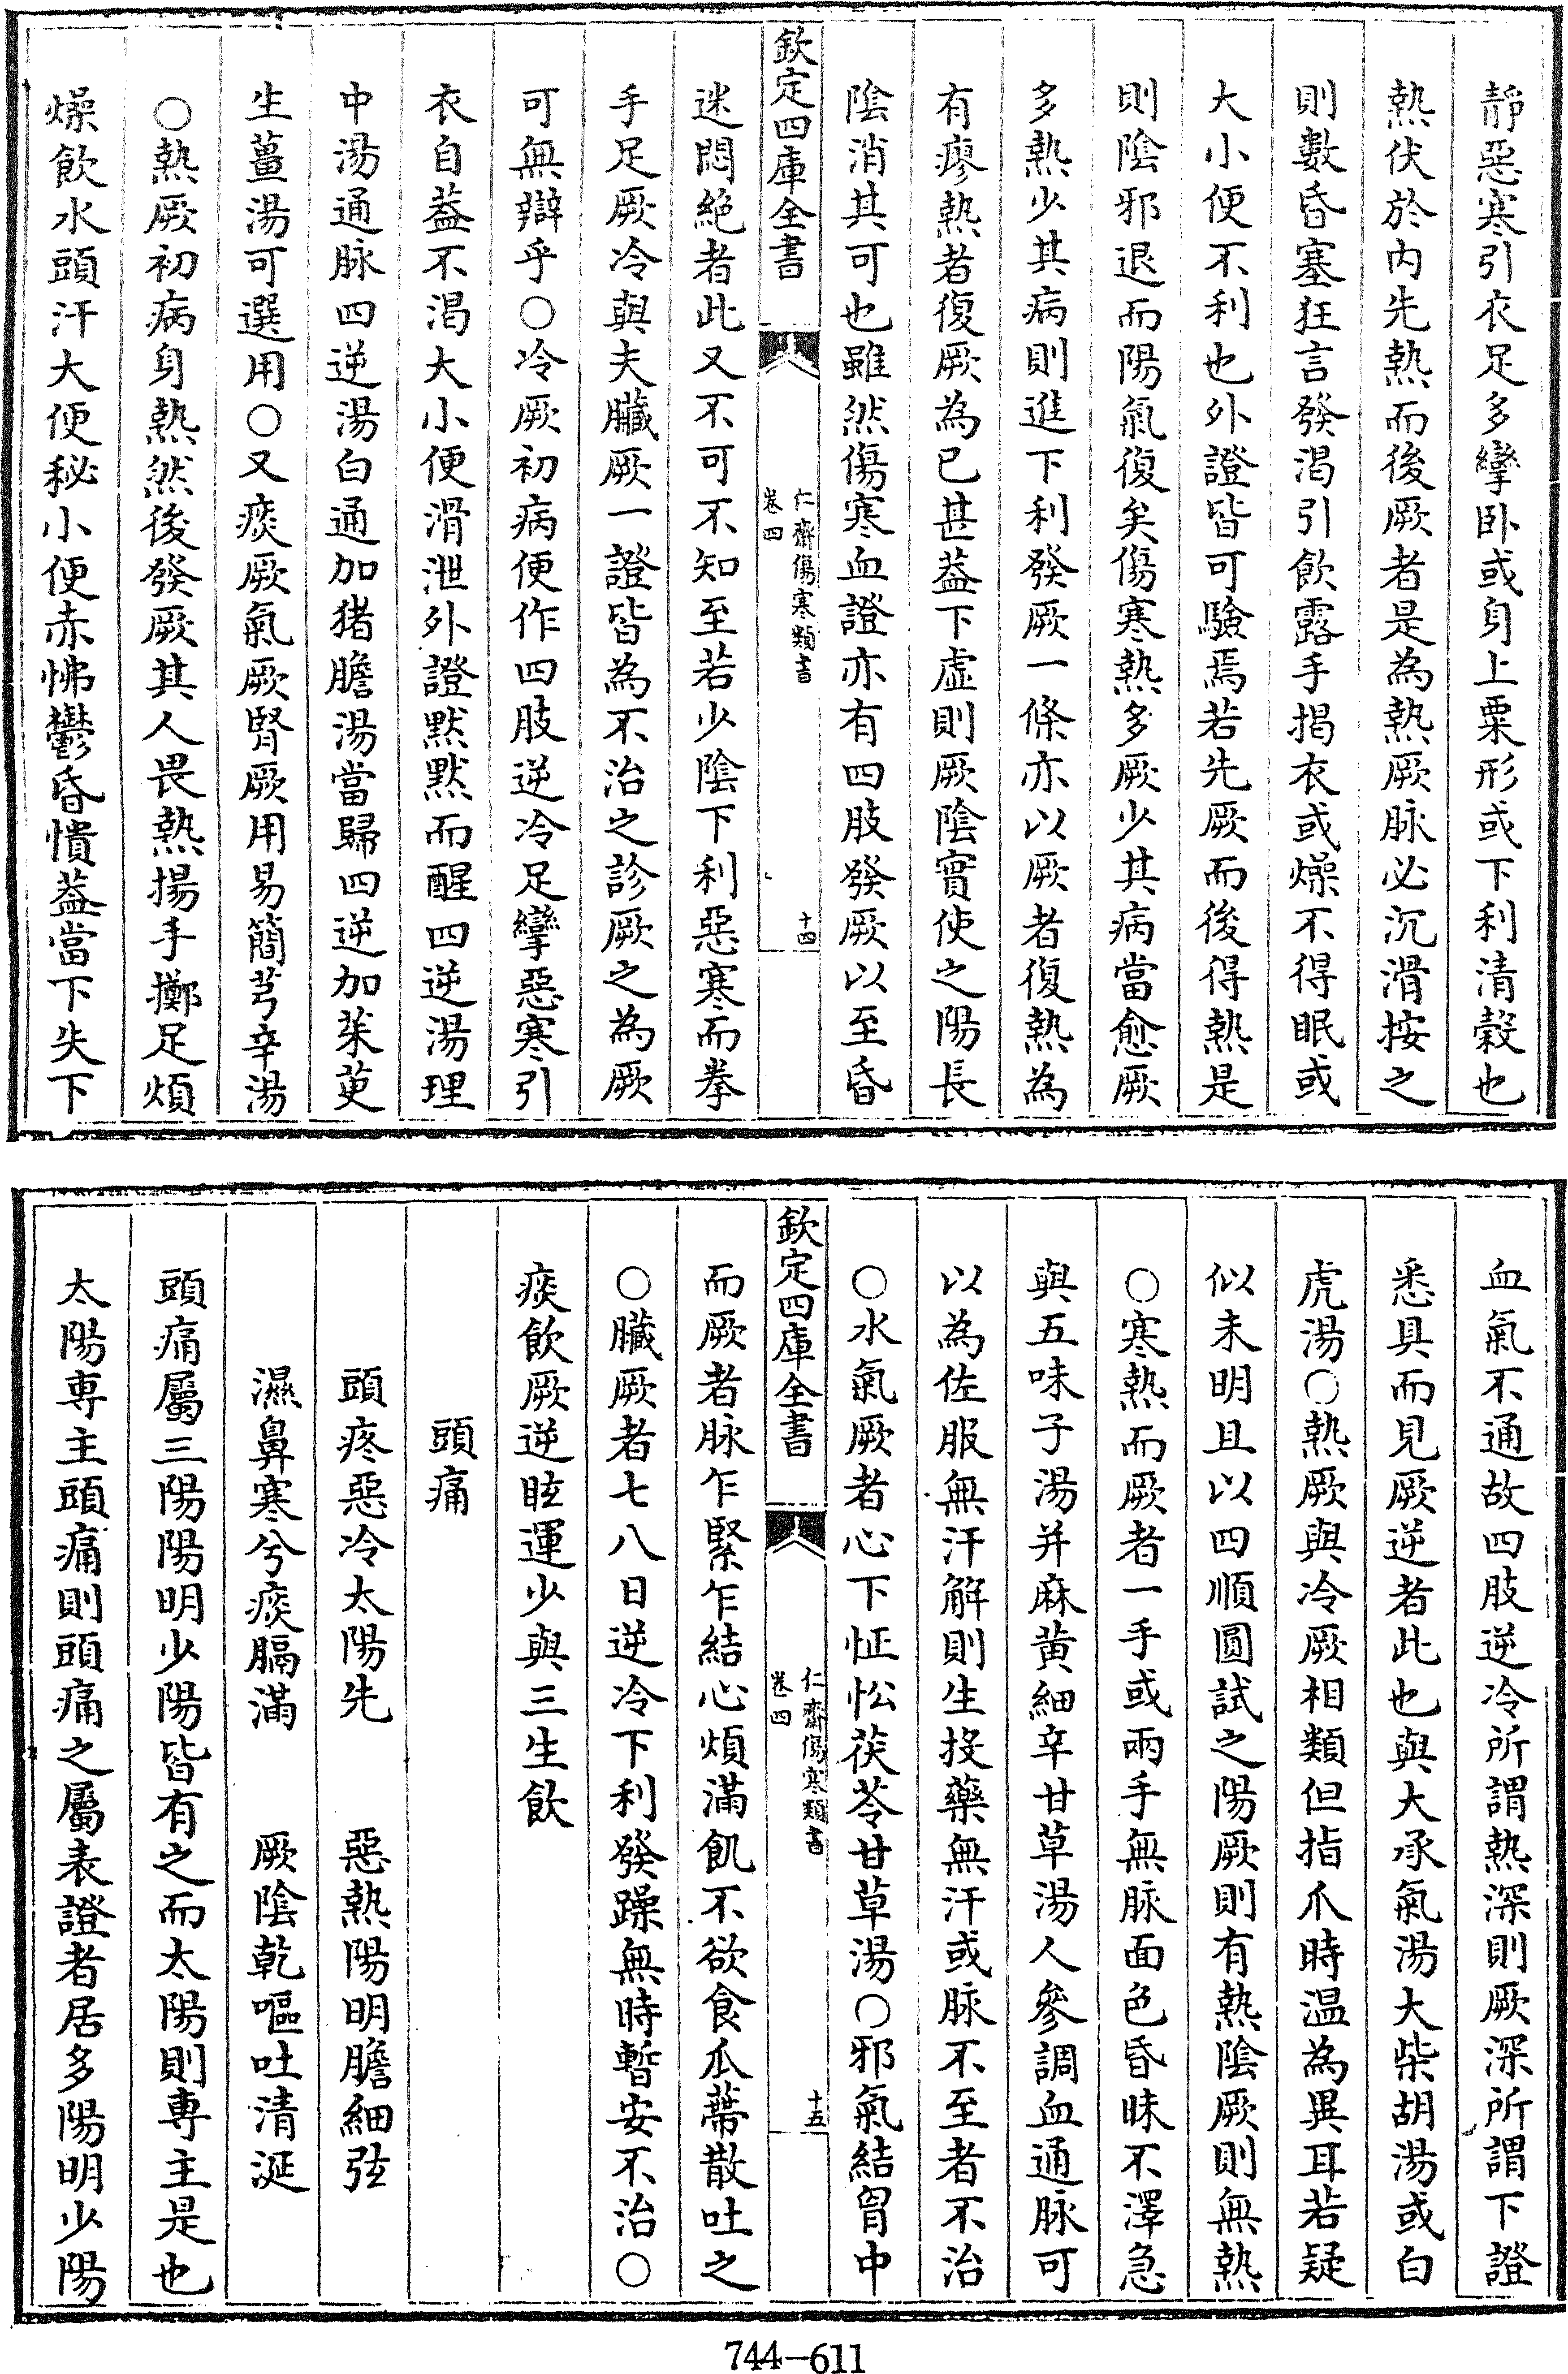 靜惡寒引衣足多攣卧或身上粟形或下利清穀也
熱伏於内先熱而後厥者是為熱厥脉必沉滑按之
則數昏塞狂言發渴引飲露手揭衣或燥不得眠或
大小便不利也外證皆可驗焉若先厥而後得熱是
則陰邪退而陽氣復矣傷寒熱多厥少其病當愈厥
多熱少其病則進下利發厥一條亦以厥者復熱為
有瘳熱者復厥為已甚葢下虚則厥陰實使之陽長
陰消其可也雖然傷寒血證亦有四肢發厥以至昏
欽定四庫全書
仁齋傷寒類書
卷四
十四
迷悶絶者此又不可不知至若少陰下利惡寒而拳
手足厥冷與夫臟厥一證皆為不治之診厥之為厥
可無辯乎○冷厥初病便作四肢逆冷足攣惡寒引
衣自葢不渴大小便滑泄外證默默而醒四逆湯理
中湯通脉四逆湯白通加猪膽湯當歸四逆加茱萸
生薑湯可選用○又痰厥氣厥腎厥用易簡芎辛湯
○熱厥初病身熱然後發厥其人畏熱揚手擲足煩
燥飲水頭汗大便秘小便赤怫鬱昏憒葢當下失下
血氣不通故四肢逆冷所謂熱深則厥深所謂下證
悉具而見厥逆者此也與大承氣湯大柴胡湯或白
虎湯○熱厥與冷厥相類但指爪時温為異耳若疑
似未明且以四順圓試之陽厥則有熱陰厥則無熱
○寒熱而厥者一手或兩手無脉面色昏昧不澤急
與五味子湯并麻黄細辛甘草湯人參調血通脉可
以為佐服無汗解則生投藥無汗或脉不至者不治
○水氣厥者心下怔忪茯苓甘草湯○邪氣結胷中
欽定四庫全書
仁齋傷寒類書
卷四
十五
而厥者脉乍緊乍結心煩滿飢不欲食瓜蔕散吐之
○臟厥者七八日逆冷下利發躁無時暫安不治○
痰飲厥逆眩運少與三生飲
頭痛
頭疼惡冷太陽先　惡熱陽明膽細弦
濕鼻寒兮痰膈滿　厥陰乾嘔吐清涎
頭痛屬三陽陽明少陽皆有之而太陽則専主是也
太陽専主頭痛則頭痛之屬表證者居多陽明少陽
744-611